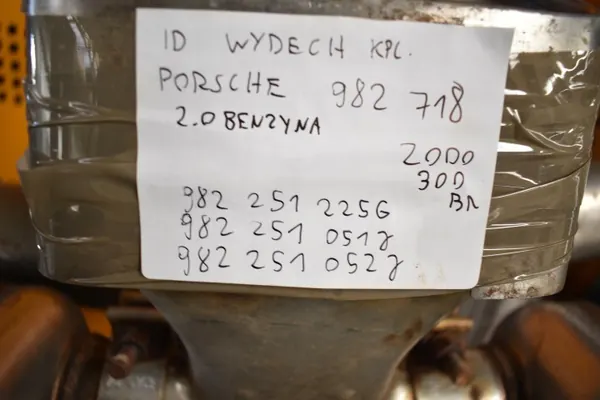 ID WYDECH KPL.
PORSCHE 982 718
2.0 BENZYNA
2000
300
982 251 225G
982 251 051J
982 251 052J